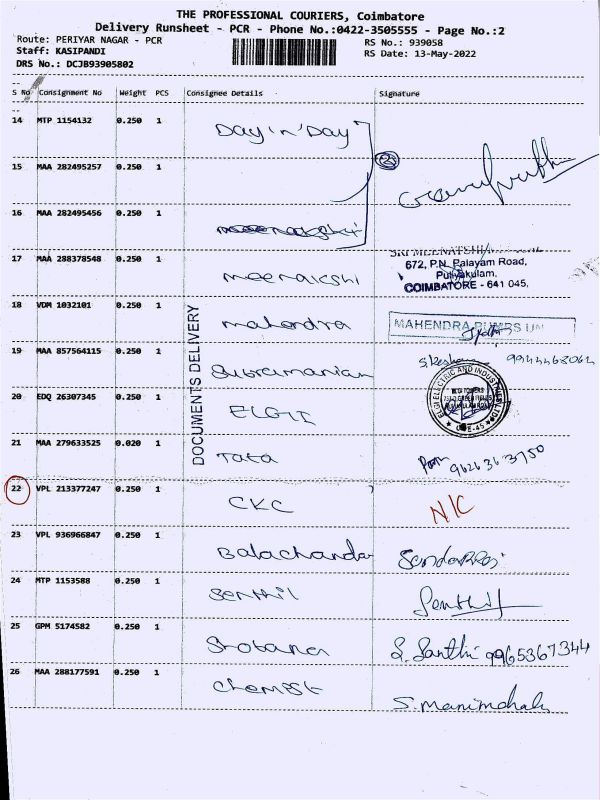 THE PROFESSIONAL COURIERS, Coimbatore
Delivery Runsheet - PCR - Phone No.:0422-3505555 - Page No.:2
Route: PERIYAR NAGAR - PCR
RS No.: 939058
Staff: KASIPANDI
RS Date: 13-May-2022
DRS No.: DCJB93905802
S No Consignment No Weight PCS Consignee Details Signature
14 MTP 1154132 0.250 1 Day'n'Day
15 MAA 282495257 0.250 1
16 MAA 282495456 0.250 1
17 MAA 288378548 0.250 1 meenakshi
672, P.N. Palayam Road,
Puliyakulam,
COIMBATORE - 641 045.
18 VDM 1032101 0.250 1 mahendra MAHENDRA PUMPS
19 MAA 857564115 0.250 1 Subramanian
20 EDQ 26307345 0.250 1 ELGII
ELGI ELECTRIC AND INDUSTRIES LTD
21 MAA 279633525 0.020 1 Tata 9626363750
DOCUMENTS DELIVERY
22 VPL 213377247 0.250 1 CKC N/C
23 VPL 936966847 0.250 1 Balachandar
24 MTP 1153588 0.250 1 Senthil Senthil
25 GPM 5174582 0.250 1 Shobana S. Santhi 9965367344
26 MAA 288177591 0.250 1 Chemist S. Manimohal